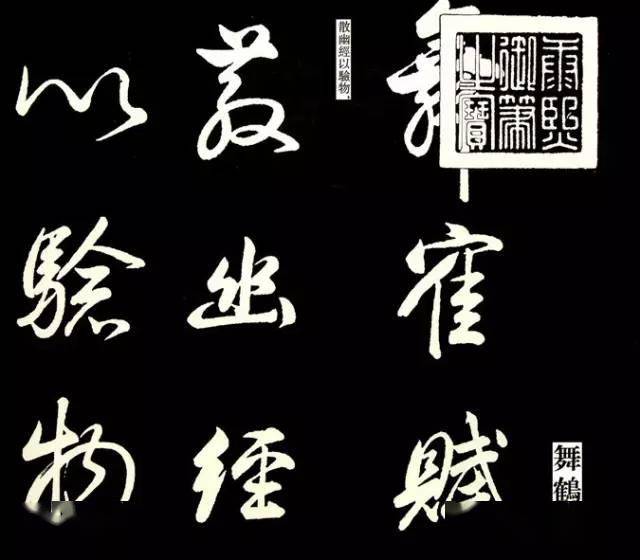 舞鶴
康熙
御筆
之寶
舞寉賦
散幽經以驗物，
散幽經
以驗物